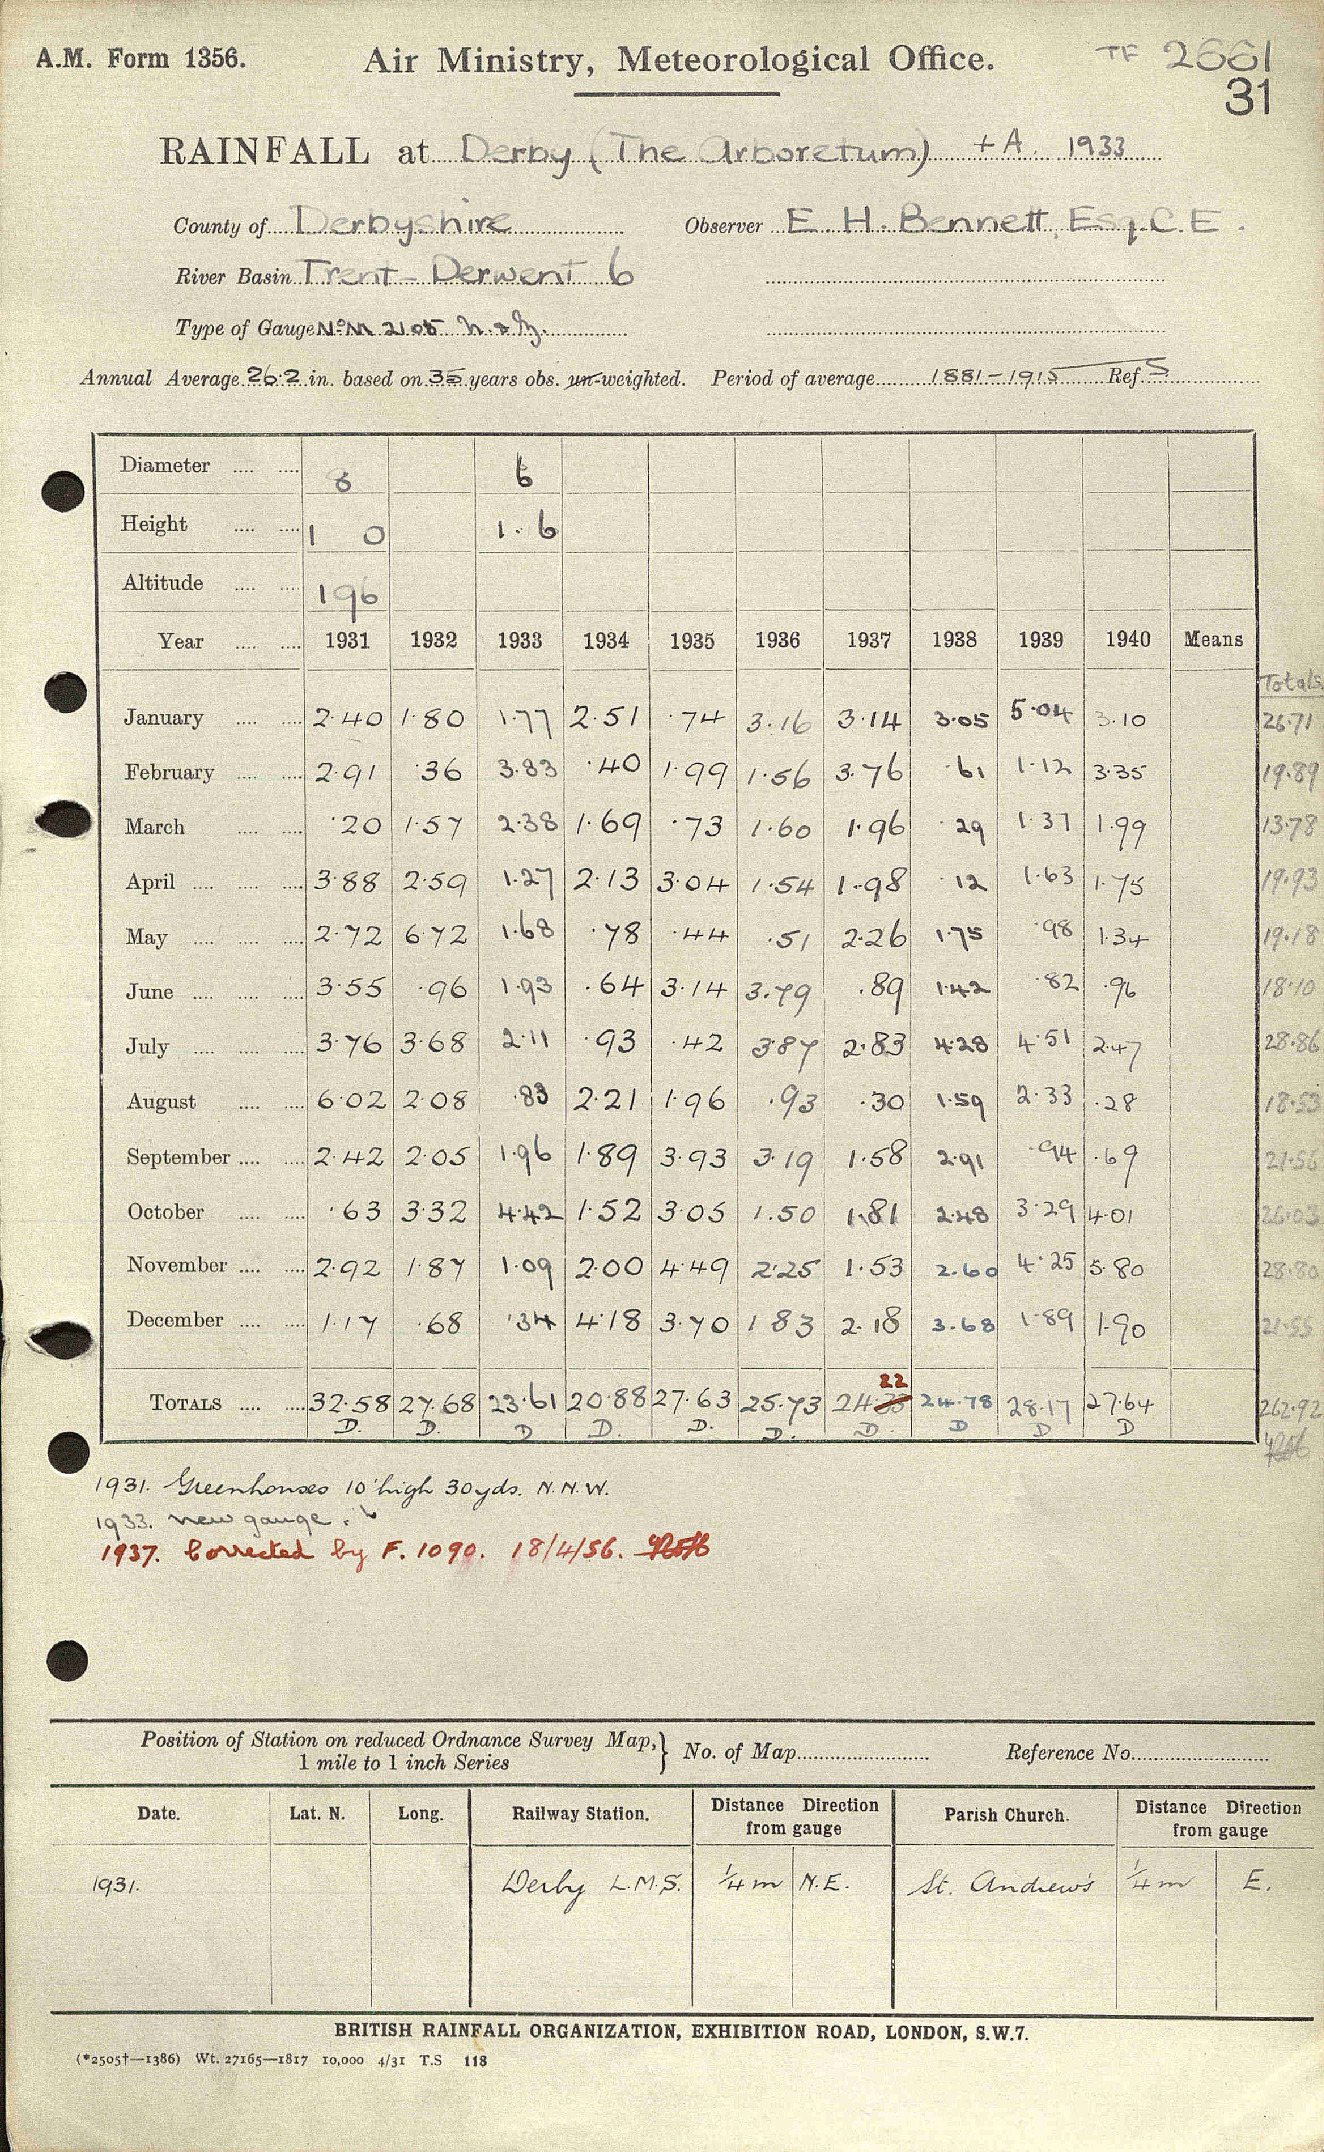 A.M. Form 1356. Air Ministry, Meteorological Office. TF 2661
31
RAINFALL at Derby (The Arboretum) + A. 1933
County of Derbyshire Observer E. H. Bennett, Esq. C.E.
River Basin Trent - Derwent 6
Type of Gauge No M 2105 N. & Z.
Annual Average 26.2 in. based on 35 years obs. un-weighted. Period of average 1881-1915 Ref. S
Diameter .... .... 8 6
Height .... .... 1 0 1.6
Altitude .... .... 196
Year .... .... 1931 1932 1933 1934 1935 1936 1937 1938 1939 1940 Means
Totals
January .... .... 2.40 1.80 1.77 2.51 .74 3.16 3.14 3.05 5.04 3.10 26.71
February .... .... 2.91 .36 3.83 .40 1.99 1.56 3.76 .61 1.12 3.35 19.89
March .... .... .20 1.57 2.38 1.69 .73 1.60 1.96 .29 1.37 1.99 13.78
April .... .... .... 3.88 2.59 1.27 2.13 3.04 1.54 1.98 .12 1.63 1.75 19.93
May .... .... .... 2.72 6.72 1.68 .78 .44 .51 2.26 1.75 .98 1.34 19.18
June .... .... .... 3.55 .96 1.93 .64 3.14 3.79 .89 1.42 .82 .96 18.10
July .... .... .... 3.76 3.68 2.11 .93 .42 3.87 2.83 4.28 4.51 2.47 28.86
August .... .... 6.02 2.08 .83 2.21 1.96 .93 .30 1.59 2.33 .28 18.53
September .... .... 2.42 2.05 1.96 1.89 3.93 3.19 1.58 2.91 .94 .69 21.56
October .... .... .63 3.32 4.42 1.52 3.05 1.50 1.81 2.48 3.29 4.01 26.03
November .... .... 2.92 1.87 1.09 2.00 4.49 2.25 1.53 2.60 4.25 5.80 28.80
December .... .... 1.17 .68 .34 4.18 3.70 1.83 2.18 3.68 1.89 1.90 21.55
22
TOTALS .... .... 32.58 27.68 23.61 20.88 27.63 25.73 24.33 24.78 28.17 27.64 262.92
D. D. D D. D. D. D. D D D
1931. Greenhouses 10' high 30yds. N.N.W.
1933. new gauge.
1937. Corrected by F. 1090. 18/4/56.
Position of Station on reduced Ordnance Survey Map, 1 mile to 1 inch Series } No. of Map Reference No.
Date. Lat. N. Long. Railway Station. Distance Direction from gauge Parish Church. Distance Direction from gauge
1931. Derby L.M.S. 1/4 m N.E. St. Andrew's 1/4 m E.
BRITISH RAINFALL ORGANIZATION, EXHIBITION ROAD, LONDON, S.W.7.
(*2505†—1386) Wt. 27165—1817 10,000 4/31 T.S 118